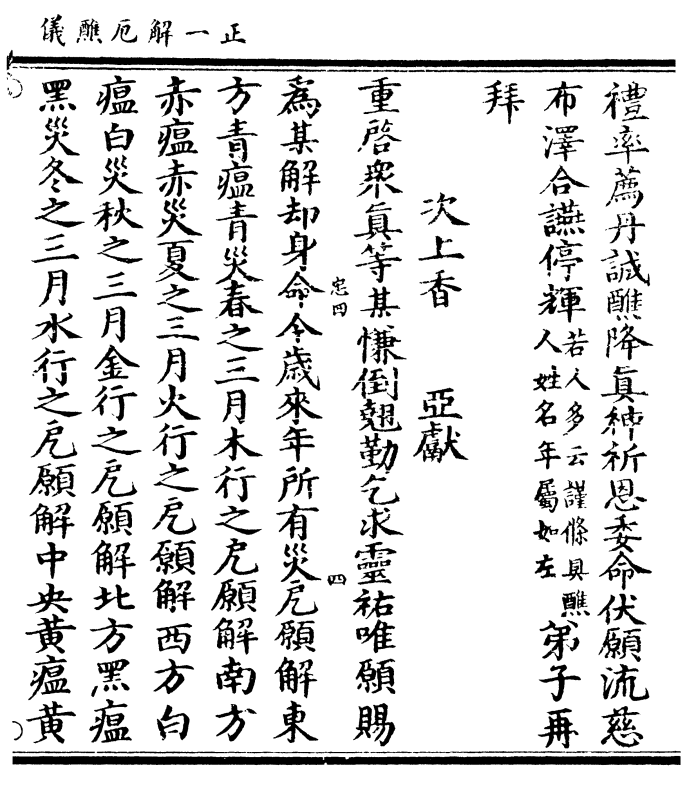 正一解厄醮儀
禮率薦丹誠醮降眞紳祈恩委命伏願流慈
布澤合讌停輝若人多云謹條具醮人姓名年屬如左弟子再
拜
次上香 亞獻
重啓衆眞等某慊倒翹勤乞求靈祐唯願賜
忠四 四
爲某解却身命今歲來年所有災厄願解東
方青瘟青災春之三月木行之厄願解南方
赤瘟赤災夏之三月火行之厄願解西方白
瘟白災秋之三月金行之厄願解北方黑瘟
黑災冬之三月水行之厄願解中央黃瘟黃